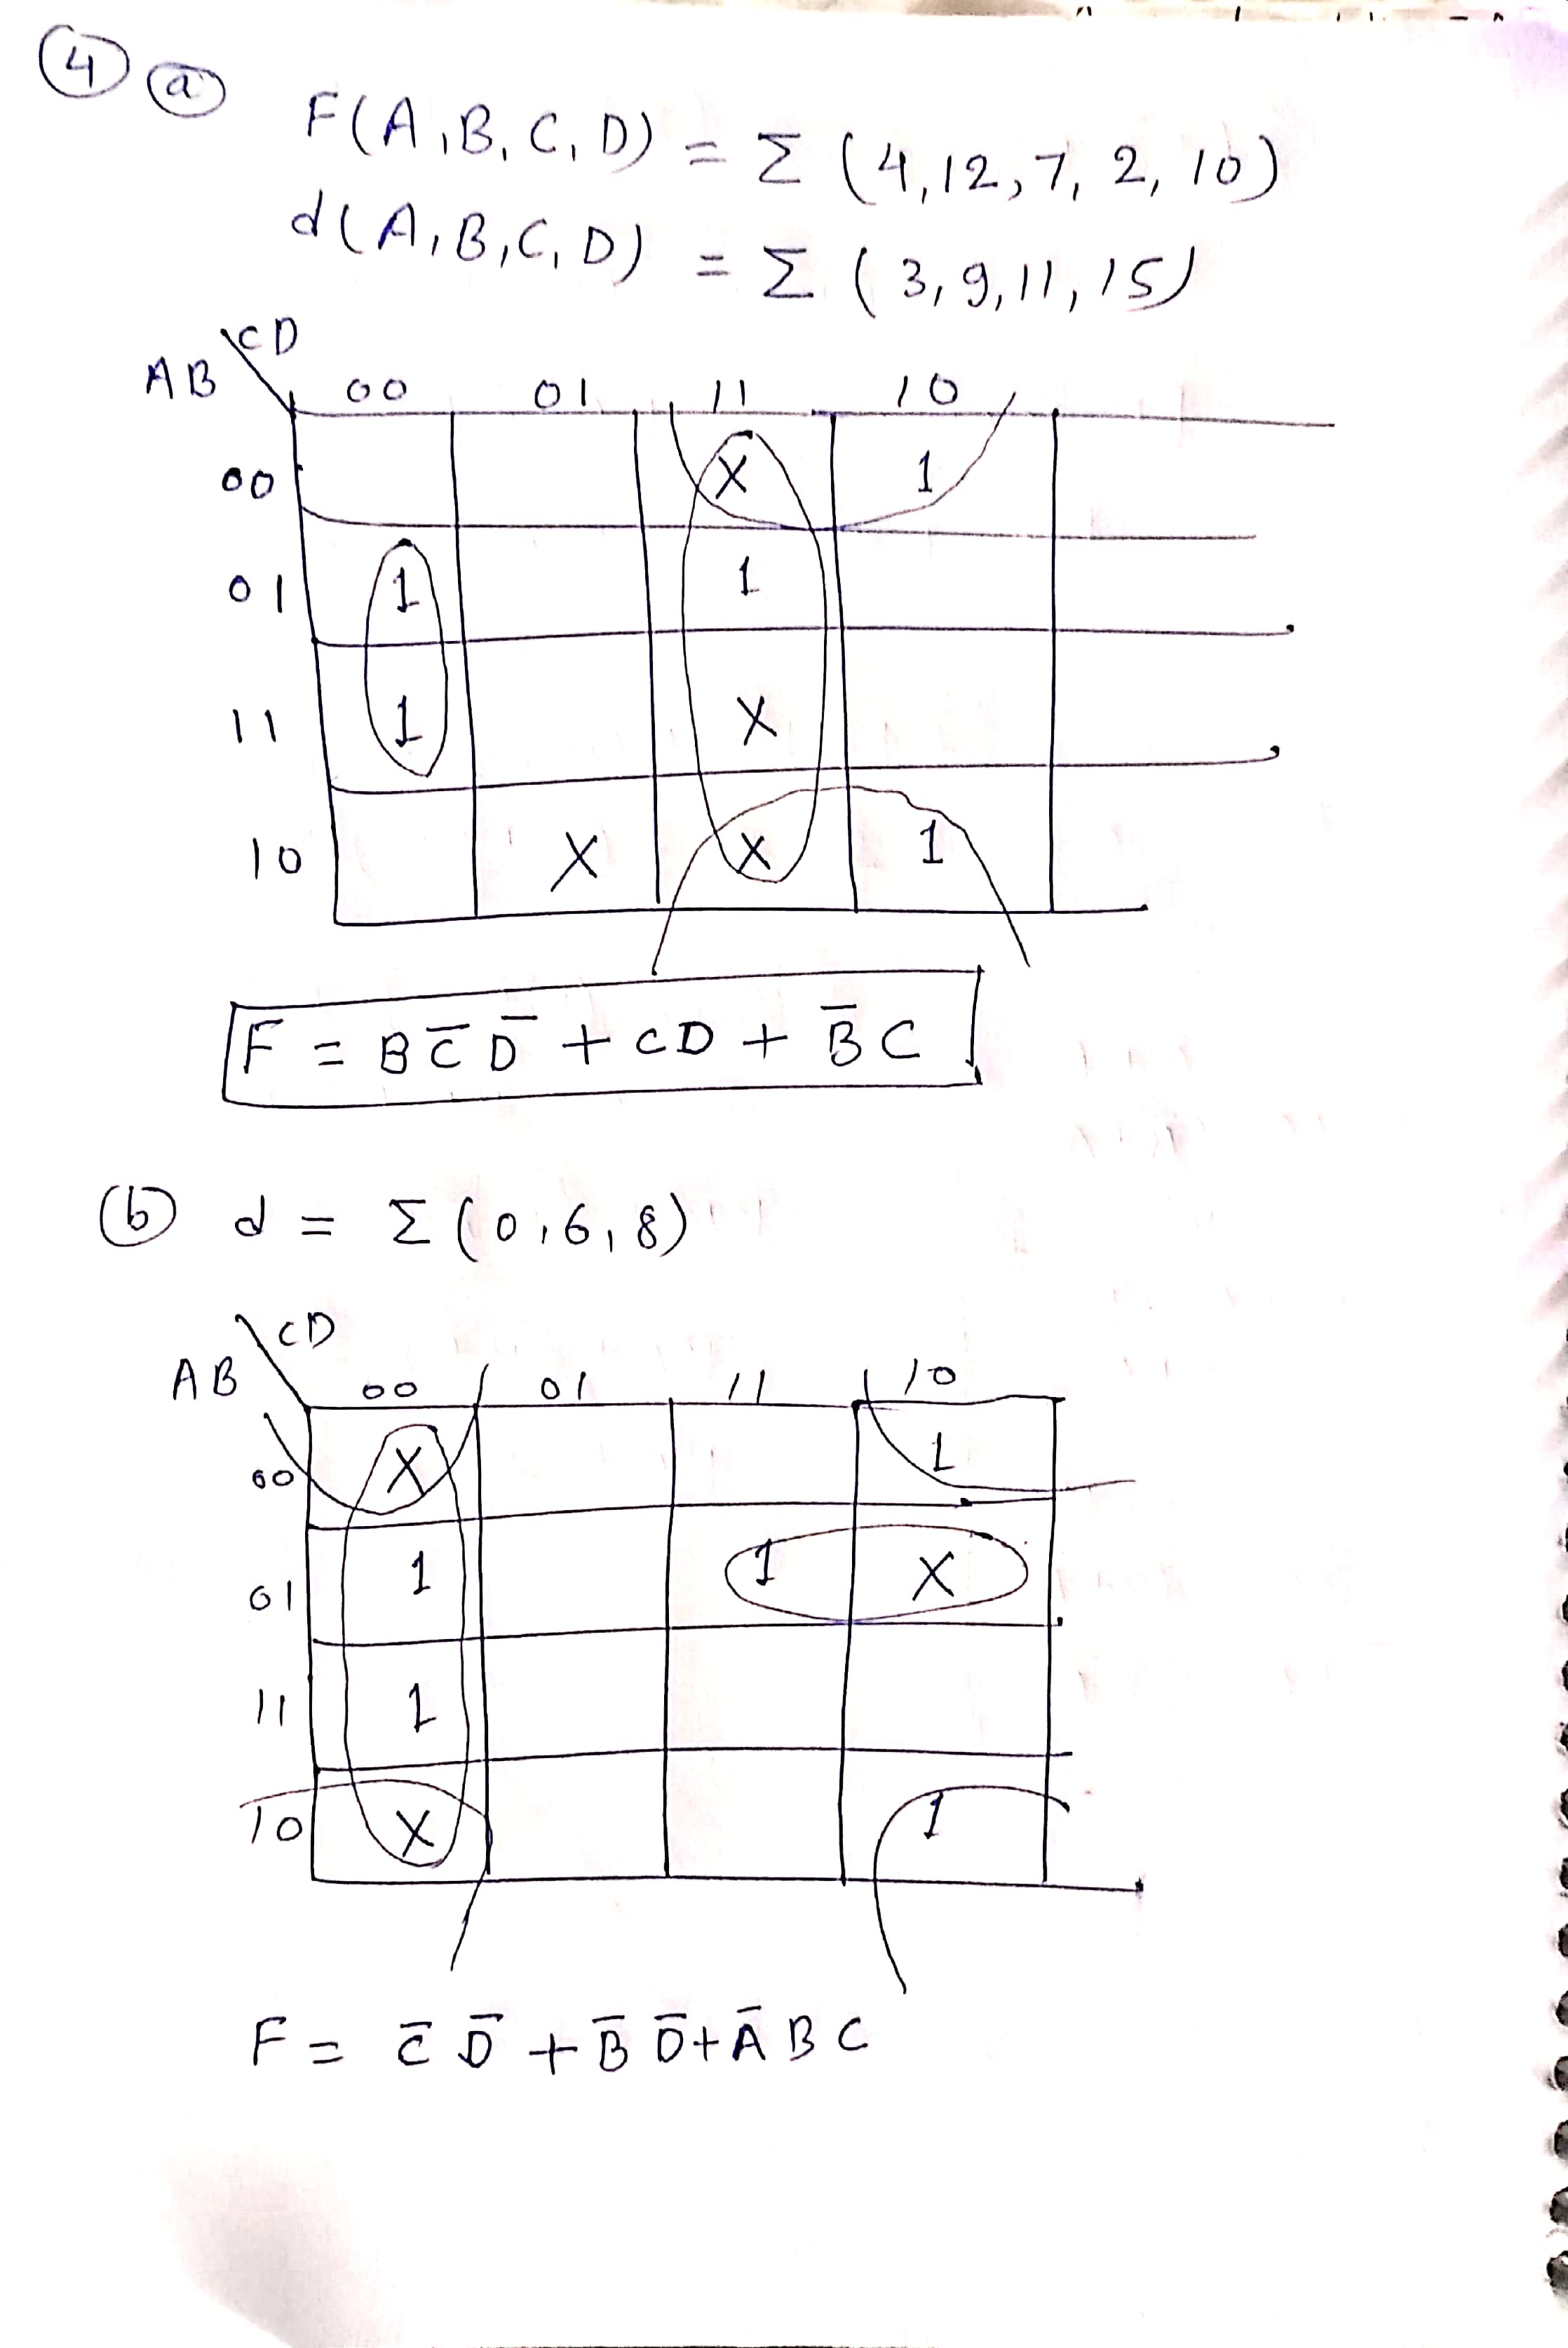 4 a
F(A,B,C,D) = Σ (4,12,7,2,10)
d(A,B,C,D) = Σ (3,9,11,15)
CD
AB 00 01 11 10
00 X 1
01 1 1
11 1 X
10 X X 1
F = BC̅D̅ + CD + B̅C
b d = Σ(0,6,8)
CD
AB 00 01 11 10
00 X 1
01 1 1 X
11 1
10 X 1
F = C̅D̅ + B̅D̅ + A̅BC